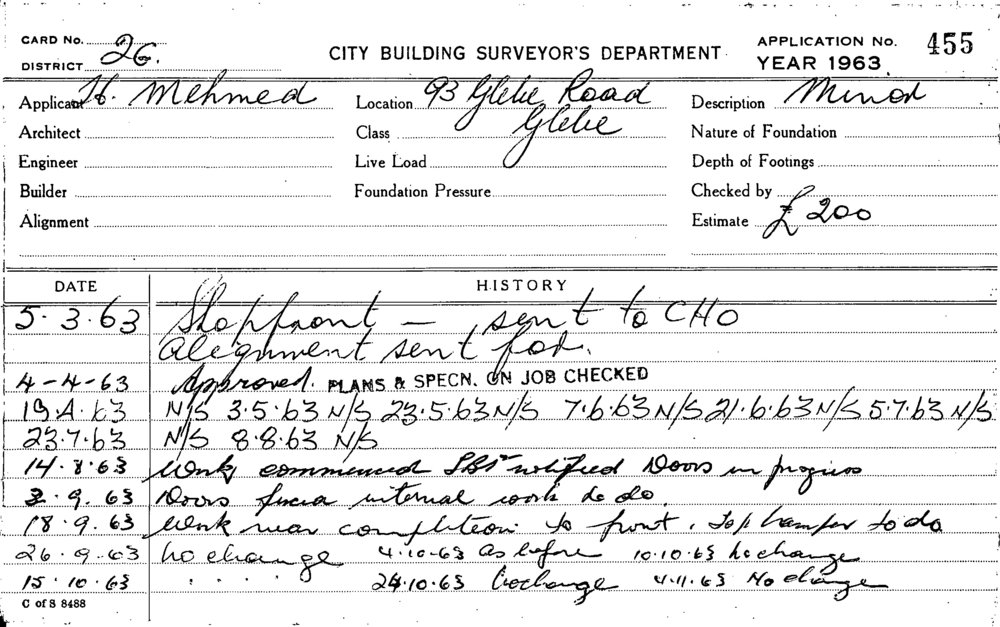 CARD No. 26.
DISTRICT
CITY BUILDING SURVEYOR'S DEPARTMENT
APPLICATION No. 455
YEAR 1963
Applicant H. Mehmed Location 93 Glebe Road Description Minor
Architect Class Glebe Nature of Foundation
Engineer Live Load Depth of Footings
Builder Foundation Pressure Checked by
Alignment Estimate £ 200
DATE HISTORY
5.3.63 Shopfront — sent to CHO
Alignment sent for.
4-4-63 Approved. PLANS & SPECN. ON JOB CHECKED
19.4.63 N/S 3.5.63 N/S 23.5.63 N/S 7.6.63 N/S 21.6.63 N/S 5.7.63 N/S
23.7.63 N/S 8.8.63 N/S
14.8.63 Work commenced notified Doors in progress
2.9.63 Doors fascia internal work to do.
18.9.63 Work near completion to front. Top hamper to do
26.9.63 No change 4.10.63 As before 10.10.63 No change
15.10.63 " " " " 24.10.63 No change 4.11.63 No change
C of S 8488